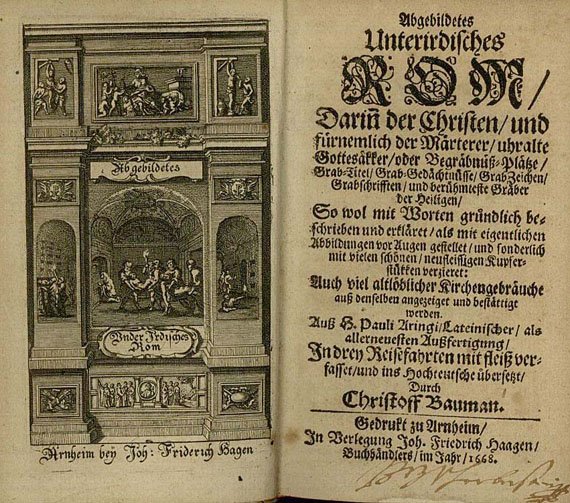 Abgebildetes
Under Irdisches
Rom
Arnheim bey Joh: Friderich Hagen
Abgebildetes
Unterirdisches
ROM/
Dariñ der Christen/ und
fürnemlich der Märterer/ uhralte
Gottesäkker/ oder Begräbniß-Plätze/
Grab-Titel/ Grab-Gedächtnüsse/ Grab Zeichen/
Grabschrifften/ und berühmteste Gräber
der Heiligen/
So wol mit Worten gründlich be-
schrieben und erkläret/ als mit eigentlichen
Abbildungen vor Augen gestellet/ und sonderlich
mit vielen schönen/ neufleissigen Kupfer-
stükken verzieret:
Auch viel altlöblicher Kirchengebräuche
auß denselben angezeiget und bestättigt
werden.
Auß H. Pauli Aringi/ Lateinischer/ als
allerneuesten Außfertigung/
In drey Reisefahrten mit fleiß ver-
fasset/ und ins Hochteutsche übersetzt/
Durch
Christoff Bauman.
Gedrukt zu Arnheim/
In Verlegung Joh. Friedrich Haagen/
Buchhändlers/ im Jahr/ 1668.